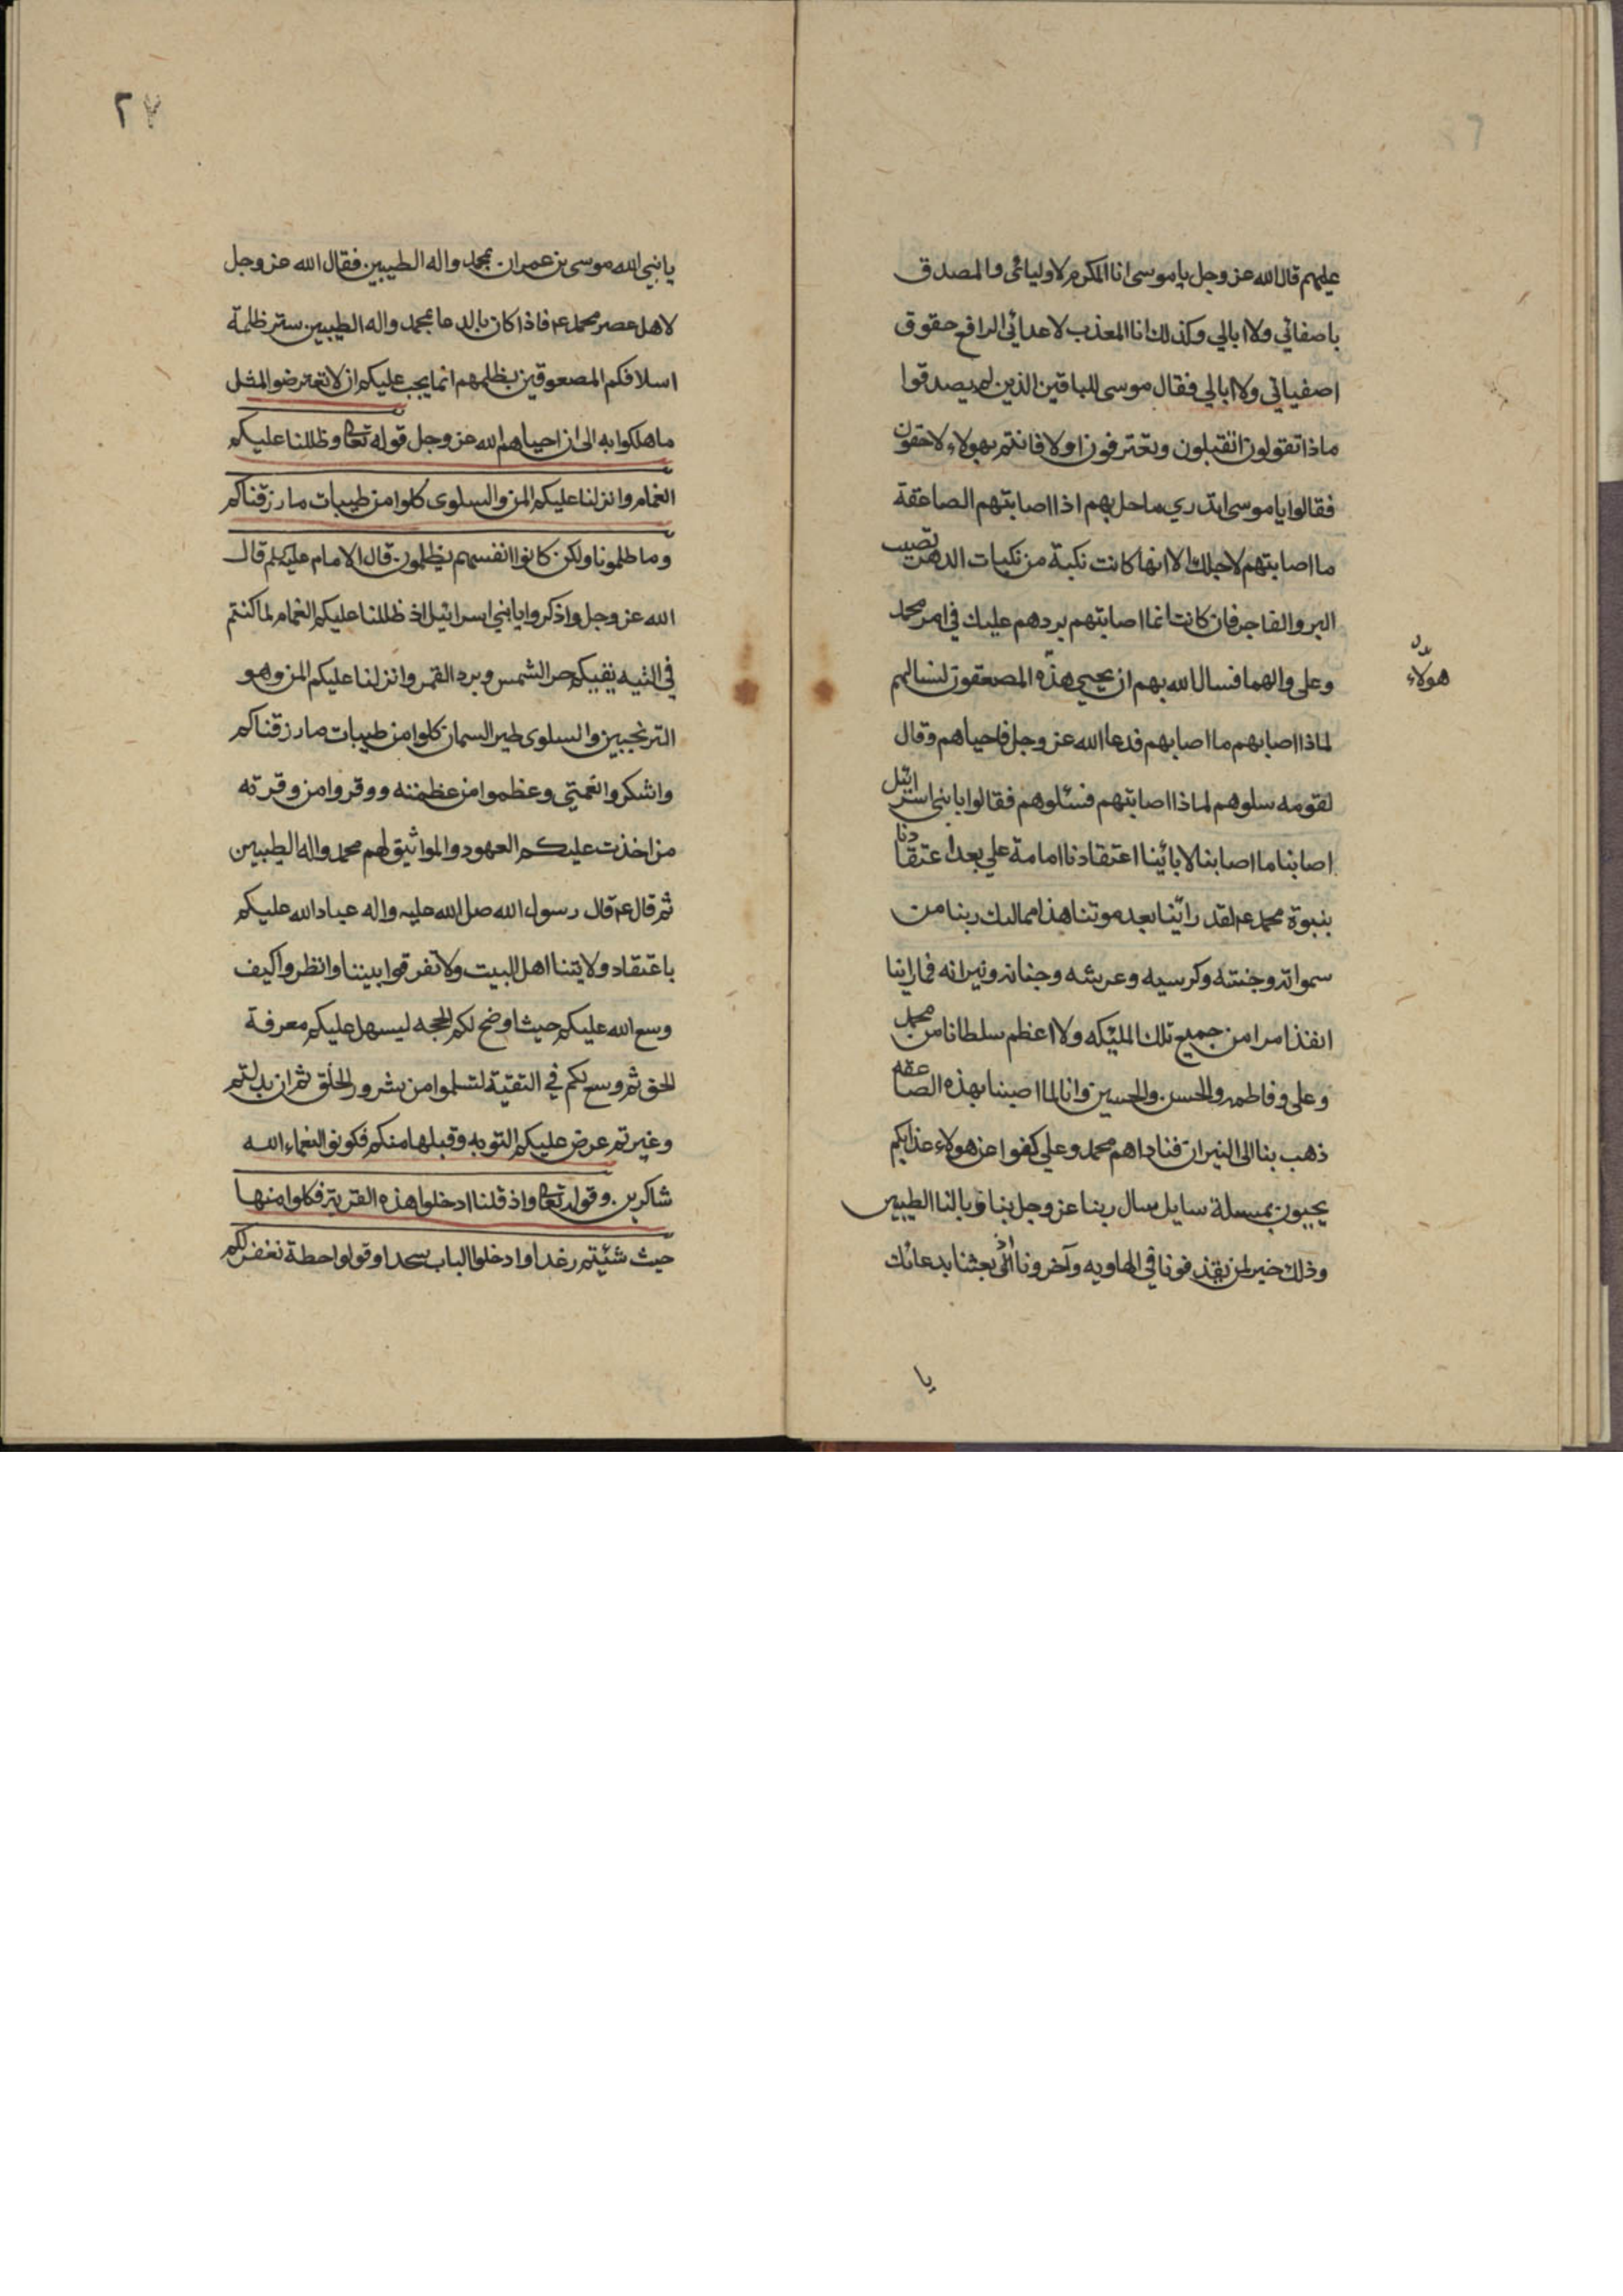 عليهم قال الله عز وجل يا موسى انا المكرم لاوليائي والمصدق
باصفائي ولا ابالي وكذلك انا المعذب لاعدائي الرافع حقوق
اصفيائي ولا ابالي فقال موسى للباقين الذين لم يصدقوا
ماذا تقولون اتقبلون وتعترفون اولا فانتم بهولاء لاحقون
فقالوا يا موسى اتدري ما حل بهم اذا اصابتهم الصاعقة
ما اصابتهم لاجلك الا انها كانت نكبة من نكبات الدهر تصيب
البر والفاجر فان كانت انما اصابتهم بردهم عليك في امر محمد
وعلى والهما فسال الله بهم ان يحيي هذه المصعقون لنسالهم
هولاء
لماذا اصابهم ما اصابهم فدعا الله عز وجل فاحياهم وقال
لقومه سلوهم لماذا اصابتهم فسئلوهم فقالوا يا بني اسرائيل
اصابنا ما اصابنا لابائينا اعتقادنا امامة علي بعد اعتقادنا
بنبوة محمد ع لقد راتينا بعد موتنا هذا ممالك ربنا من
سمواته وجنته وكرسيه وعرشه وجنانه ونيرانه فما راينا
انفذ امرا من جميع تلك المليكه ولا اعظم سلطانا من محمد
وعلى وفاطمه والحسن والحسين وانا لما اصبنا بهذه الصاعقه
ذهب بنا الى النيران فناداهم محمد وعلي كفوا عن هولاء عذابكم
يحيون بمسلة سايل سال ربنا عز وجل بنا وبالنا الطيبين
وذلك خير لمن يقذفونا في الهاويه وآخرونا الى اذ بعثنا بدعائك
يا
٢٧
يا نبي الله موسى بن عمران بمحمد واله الطيبين فقال الله عز وجل
لاهل عصر محمد ع فاذا كان بالدعا بمحمد واله الطيبين ستر ظلمة
اسلافكم المصعوقين بظلمهم انما يجب عليكم ان لا تتعرضوا لمثل
ما هلكوا به الى ان احياهم الله عز وجل قوله تعا وظللنا عليكم
الغمام وانزلنا عليكم المن والسلوى كلوا من طيبات ما رزقناكم
وما ظلمونا ولكن كانوا انفسهم يظلمون قال الامام عليه لم قال
الله عز وجل واذكروا يا بني اسرائيل اذ ظللنا عليكم الغمام لما كنتم
في التيه يقيكم حر الشمس وبرد القمر وانزلنا عليكم المن وهو
الترنجبين والسلوى طير السمان كلوا من طيبات ما رزقناكم
واشكروا نعمتي وعظموا من عظمته ووقروا من وقرته
من اخذت عليكم العهود والمواثيق لهم محمد واله الطيبين
ثم قال ع قال رسول الله صل الله عليه واله عباد الله عليكم
باعتقاد ولايتنا اهل البيت ولا تفرقوا بيننا وانظروا كيف
وسع الله عليكم حيث اوضح لكم الحجه ليسهل عليكم معرفة
الحق ثم وسع لكم في التقية لتسلموا من شرور الخلق ثم ان بدلتم
وغيرتم عرض عليكم التوبه وقبلها منكم فكونوا لنعماء الله
شاكرين وقوله تعا واذ قلنا ادخلوا هذه القرية فكلوا منها
حيث شئتم رغدا وادخلوا الباب سجدا وقولوا حطة نغفر لكم